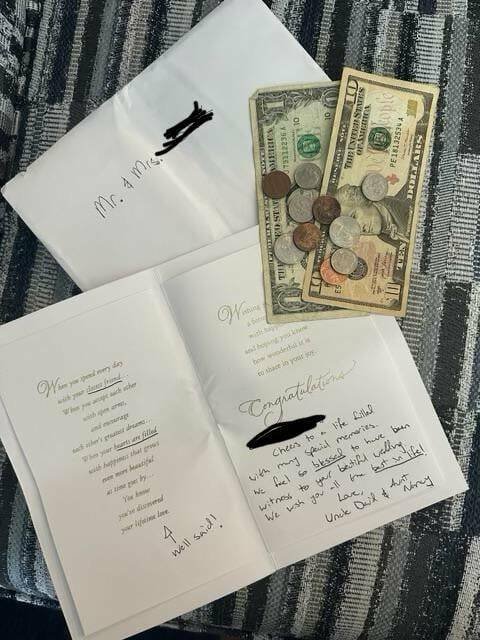 Mr. & Mrs.
When you spend every day
with your closest friend...
When you accept each other
with open arms,
and encourage
each other's greatest dreams...
When your hearts are filled
with happiness that grows
even more beautiful
as time goes by...
You know
you've discovered
your lifetime love.
↑
well said!
Wishing
with happ
and hoping you know
how wonderful it is
to share in your joy.
Congratulations
Cheers to a life filled
with many special memories.
We feel so blessed to have been
witness to your beatiful wedding
We wish you all the best in life!
Love,
Uncle David & Aunt
Nancy
1
THE UNITED STATES
10
THE UNITED STATES OF AMERICA
PE18132534A
TEN DOLLARS
10